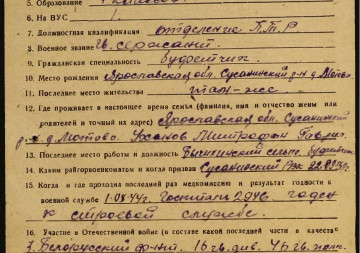 5. Образование
6. На ВУС
7. Должностная квалификация отделение П.Т.Р
8. Военное звание гв. сержант
9. Гражданская специальность
10. Место рождения Ярославская обл. Сусанинский р-н д. Лютово
11. Последнее место жительства
12. Где проживает в настоящее время семья (фамилия, имя и отчество жены или
родителей и точный их адрес) Ярославская обл. Сусанинский
р-н д. Лютово. Уханов Митрофан
13. Последнее место работы и должность
14. Каким райгорвоенкоматом и когда призван Сусанинский РВК
15. Когда и где проходил последний раз медкомиссию и результат годности к
военной службе 1-08-44г. Госпиталь 2946 годен
к строевой службе.
16. Участие в Отечественной войне (в составе какой последней части в качестве
3. Белорусский фронт. 16 гв. див. 46 гв. полк